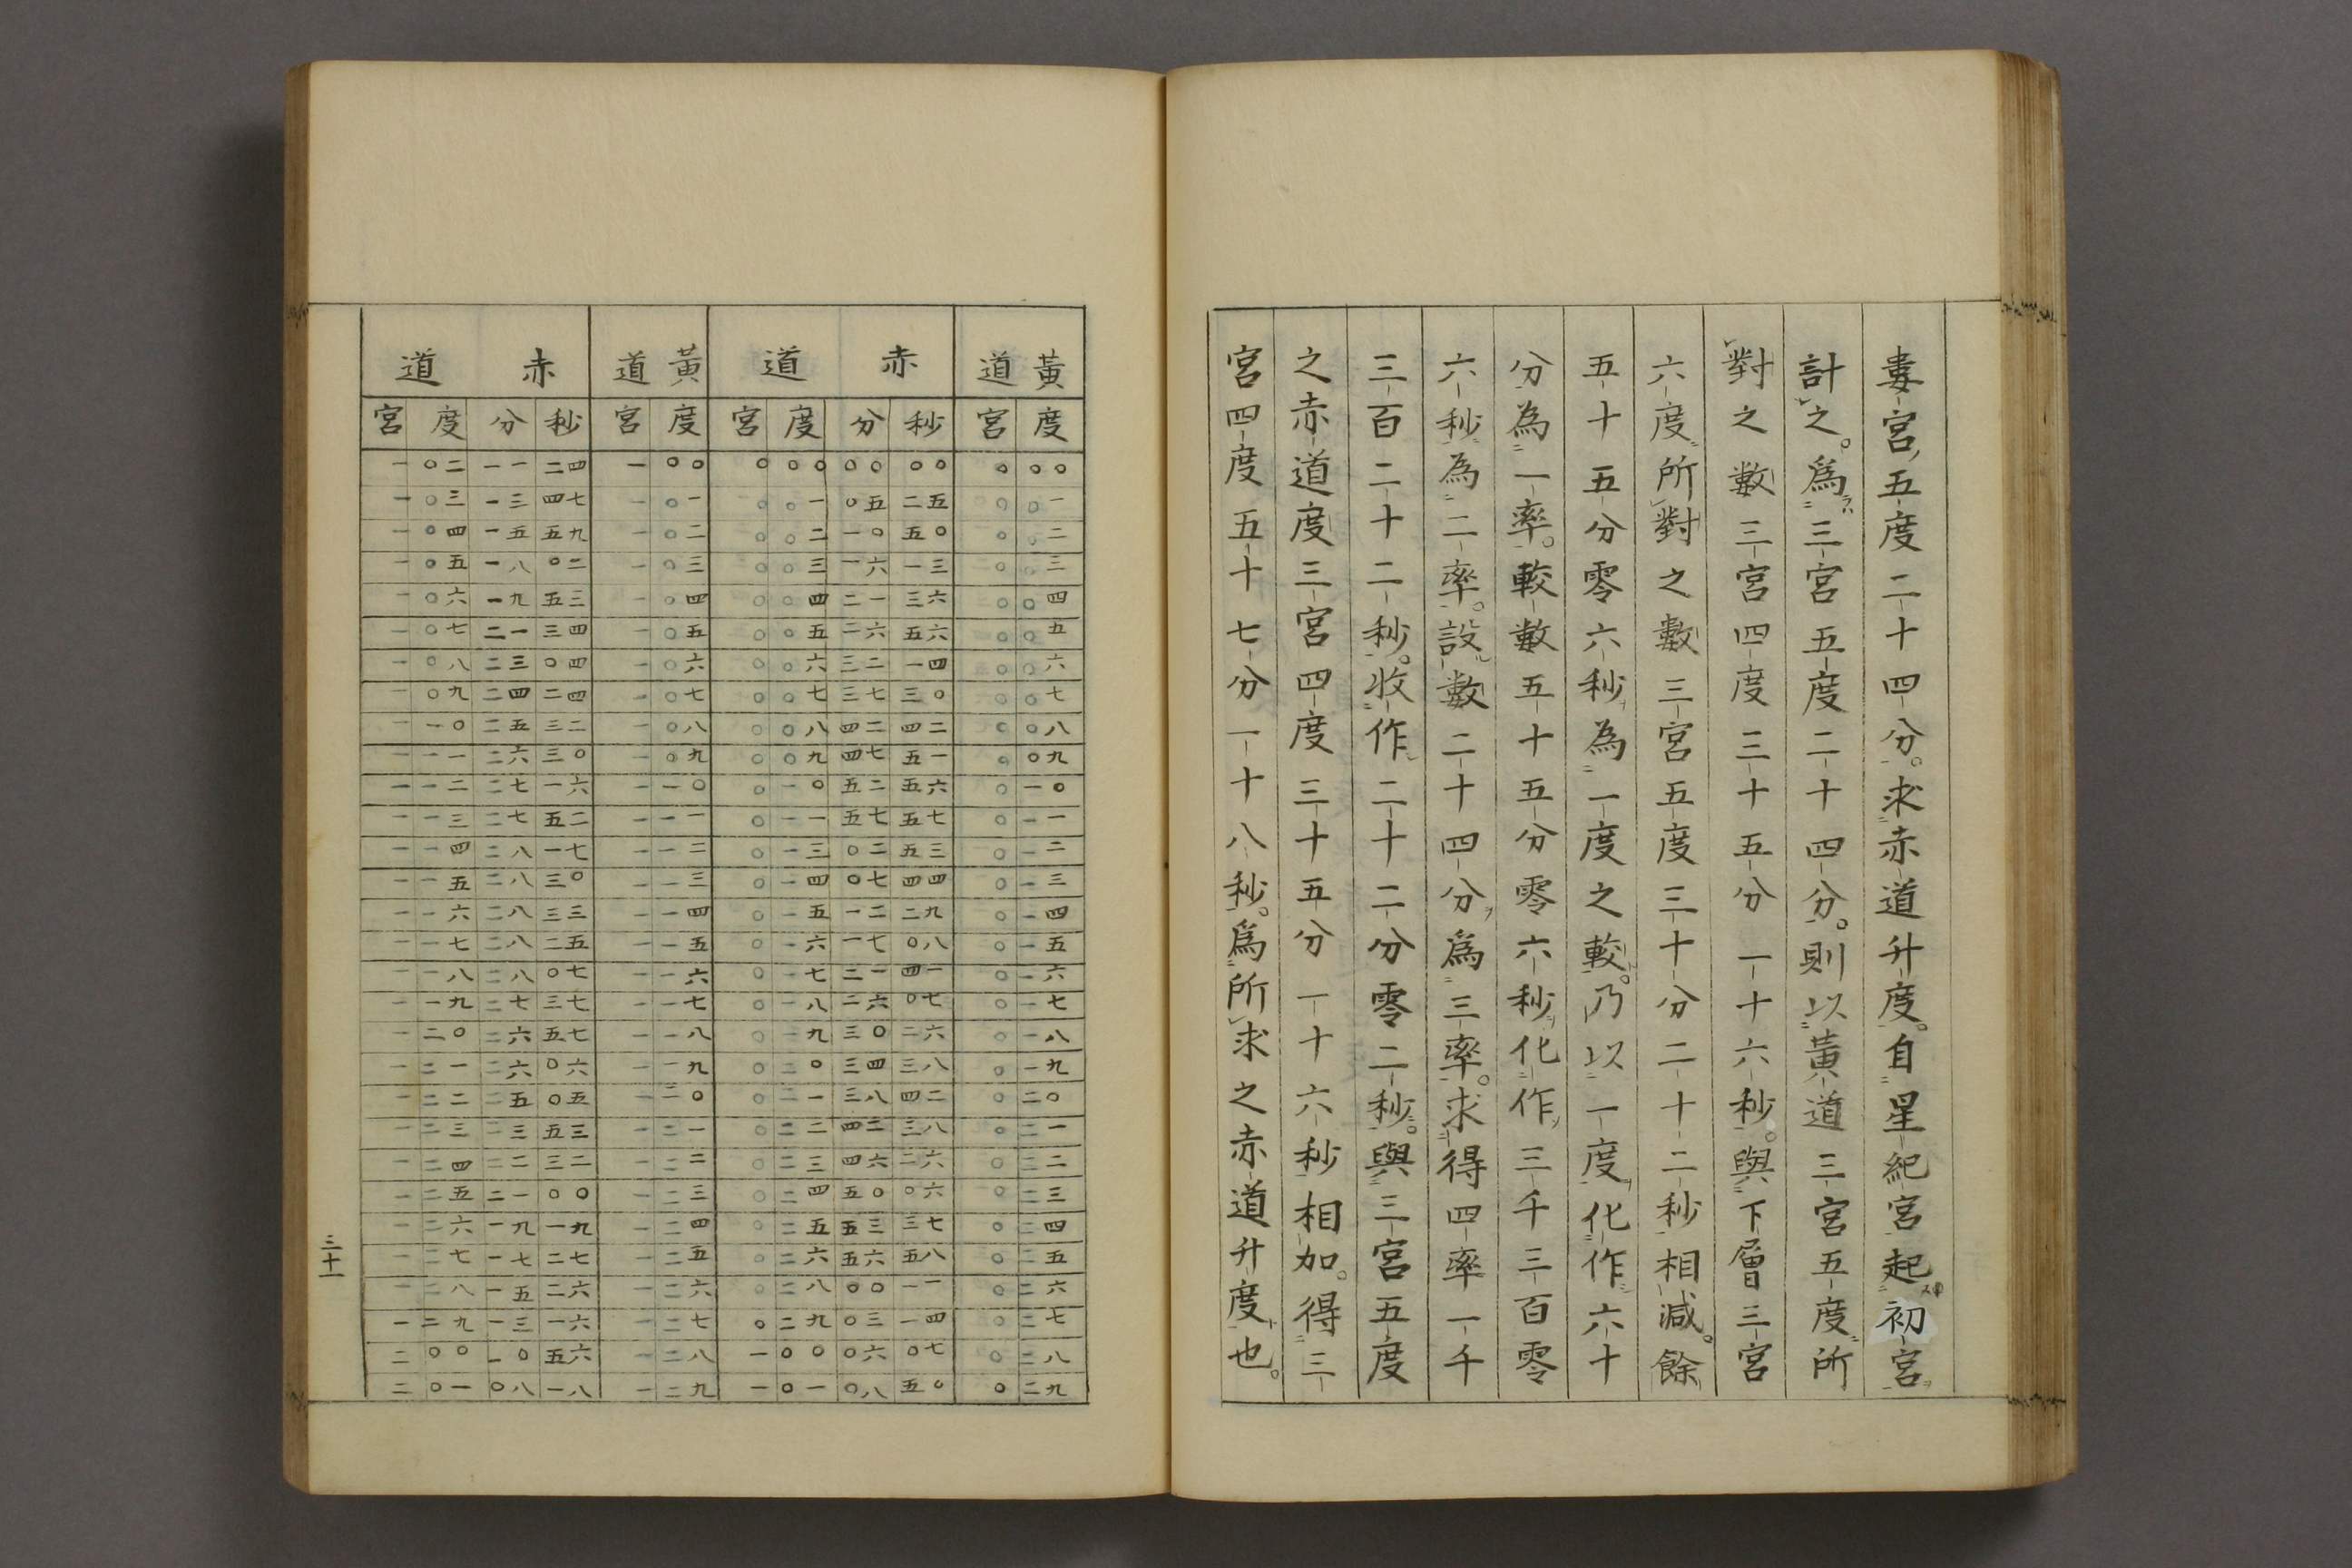 婁宮五度二十四分。求赤道升度。自星紀宮起初宮
計之。爲三宮五度二十四分。則以黃道三宮五度所
對之數三宮四度三十五分一十六秒。與下層三宮
六度所對之數三宮五度三十分二十二秒相減。餘
五十五分零六秒為一度之較。乃以一度化作六十
分為一率。較數五十五分零六秒化作三千三百零
六秒為二率。設數二十四分爲三率。求得四率一千
三百二十二秒。收作二十二分零二秒。與三宮五度
之赤道度三宮四度三十五分一十六秒相加。得三
宮四度五十七分一十八秒。爲所求之赤道升度也。
黃道 赤道 黃道 赤道
度 宮 秒 分 度 宮 度 宮 秒 分 度 宮
〇〇 〇 〇〇 〇〇 〇〇 〇 〇〇 一 二四 一一 〇二 一
〇一 〇 二五 〇五 〇一 〇 〇一 一 四七 一三 〇三 一
〇二 〇 五〇 一〇 〇二 〇 〇二 一 五九 一五 〇四 一
〇三 〇 一三 一六 〇三 〇 〇三 一 〇二 一八 〇五 一
〇四 〇 三六 二一 〇四 〇 〇四 一 五三 一九 〇六 一
〇五 〇 五六 二六 〇五 〇 〇五 一 三四 二一 〇七 一
〇六 〇 一四 三二 〇六 〇 〇六 一 〇四 二三 〇八 一
〇七 〇 三〇 三七 〇七 〇 〇七 一 二四 二四 〇九 一
〇八 〇 四二 四二 〇八 〇 〇八 一 三二 二五 一〇 一
〇九 〇 五一 四七 〇九 〇 〇九 一 三〇 二六 一一 一
一〇 〇 五六 五二 一〇 〇 一〇 一 一六 二七 一二 一
一一 〇 五七 五七 一一 〇 一一 一 五二 二七 一三 一
一二 〇 五三 〇二 一三 〇 一二 一 一七 二八 一四 一
一三 〇 四四 〇七 一四 〇 一三 一 三〇 二八 一五 一
一四 〇 二九 一二 一五 〇 一四 一 三三 二八 一六 一
一五 〇 〇八 一七 一六 〇 一五 一 二五 二八 一七 一
一六 〇 四一 二一 一七 〇 一六 一 〇七 二八 一八 一
一七 〇 〇七 二六 一八 〇 一七 一 三七 二七 一九 一
一八 〇 二六 三〇 一九 〇 一八 一 五七 二六 二〇 一
一九 〇 三八 三四 二〇 〇 一九 一 〇六 二六 二一 一
二〇 〇 四二 三八 二一 〇 二〇 一 〇五 二五 二二 一
二一 〇 三八 四二 二二 〇 二一 一 五三 二三 二三 一
二二 〇 二六 四六 二三 〇 二二 一 三二 二二 二四 一
二三 〇 〇六 五〇 二四 〇 二三 一 〇〇 二一 二五 一
二四 〇 三七 五三 二五 〇 二四 一 一九 一九 二六 一
二五 〇 五八 五六 二六 〇 二五 一 二七 一七 二七 一
二六 〇 一一 〇〇 二八 〇 二六 一 二六 一五 二八 一
二七 〇 一四 〇三 二九 〇 二七 一 一六 一三 二九 一
二八 〇 〇七 〇六 〇〇 一 二八 一 五六 一〇 〇〇 二
二九 〇 五〇 〇八 〇一 一 二九 一 一八 〇八 〇一 二
三十一